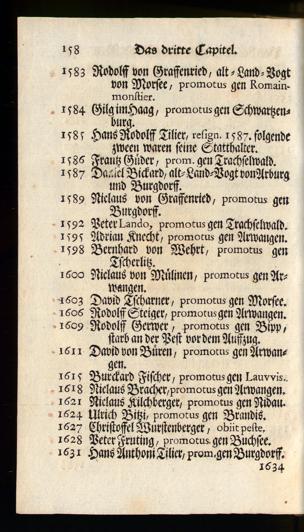 158 Das dritte Capitel.
1583 Rodolff von Graffenried, alt-Land-Vogt
von Morsee, promotus gen Romain-
monstier.
1584 Gilg im Haag, promotus gen Schwartzen-
burg.
1585 Hans Rodolff Tilier, resign. 1587. folgende
zween waren seine Statthalter.
1586 Frantz Güder, prom. gen Trachselwald.
1587 Daniel Bickard, alt-Land-Vogt von Arburg
und Burgdorff.
1589 Niclaus von Graffenried, promotus gen
Burgdorff.
1592 Peter Lando, promotus gen Trachselwald.
1595 Adrian Knecht, promotus gen Arwangen.
1598 Bernhard von Wehrt, promotus gen
Tscherlitz.
1600 Niclaus von Mülinen, promotus gen Ar-
wangen.
1603 David Tscharner, promotus gen Morsee.
1606 Rodolff Steiger, promotus gen Arwangen.
1609 Rodolff Gerwer, promotus gen Bipp,
starb an der Pest vor dem Auffzug.
1611 David von Büren, promotus gen Arwan-
gen.
1615 Burckard Fischer, promotus gen Lauvvis.
1618 Niclaus Bracher, promotus gen Arwangen.
1621 Niclaus Kilchberger, promotus gen Nidau.
1624 Ulrich Bitzi, promotus gen Brandis.
1627 Christoffel Wurstenberger, obiit peste.
1628 Peter Fruting, promotus gen Buchsee.
1631 Hans Anthoni Tilier, prom. gen Burgdorff.
1634